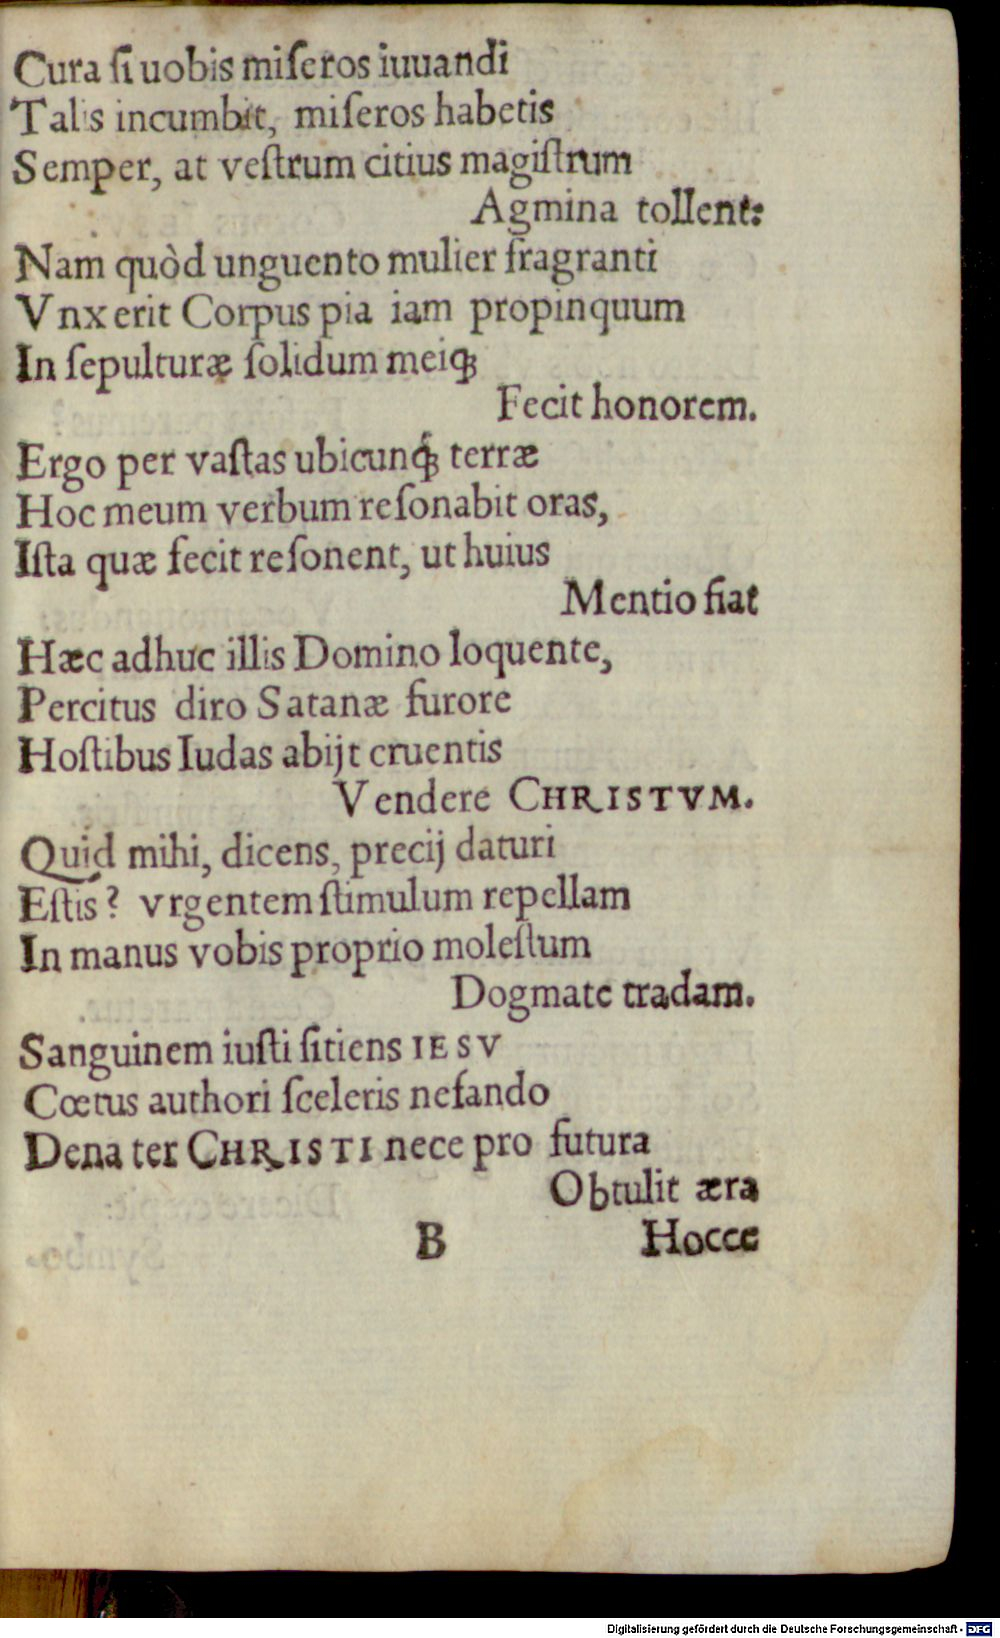 Cura ſi uobis miſeros iuuandi
Talis incumbit, miſeros habetis
Semper, at veſtrum citius magiſtrum
Agmina tollent:
Nam quòd unguento mulier fragranti
Vnxerit Corpus pia iam propinquum
In ſepulturæ ſolidum meiq́;
Fecit honorem.
Ergo per vaſtas ubicunq́; terræ
Hoc meum verbum reſonabit oras,
Iſta quæ fecit reſonent, ut huius
Mentio fiat
Hæc adhuc illis Domino loquente,
Percitus diro Satanæ furore
Hoſtibus Iudas abijt cruentis
Vendere CHRISTVM.
Quid mihi, dicens, precij daturi
Eſtis? vrgentem ſtimulum repellam
In manus vobis proprio moleſtum
Dogmate tradam.
Sanguinem iuſti ſitiens IESV
Cœtus authori ſceleris nefando
Dena ter CHRISTI nece pro futura
Obtulit æra
B Hocce
Digitalisierung gefördert durch die Deutsche Forschungsgemeinschaft - DFG